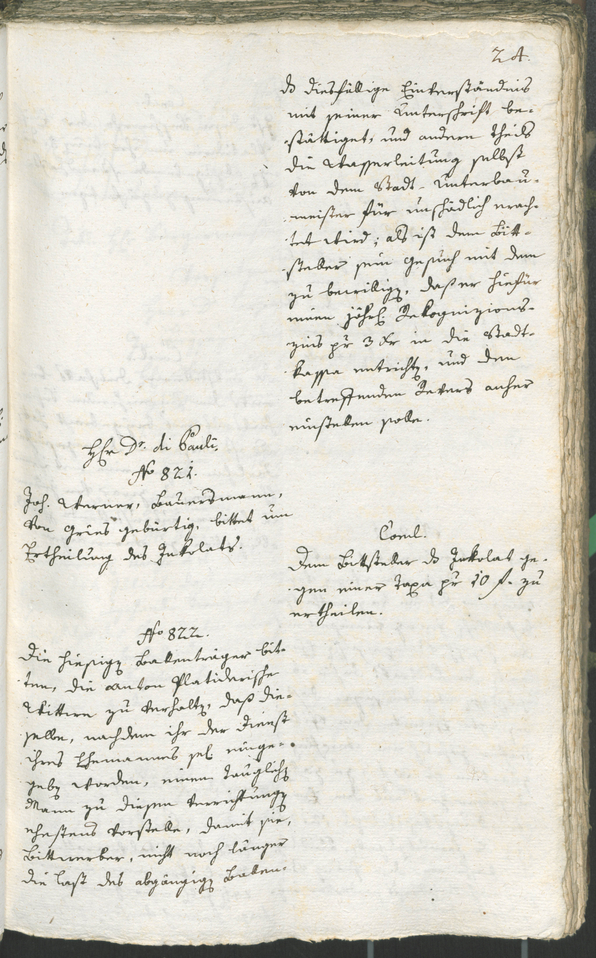 24.
dß diesfällige Einverständnis
mit seiner Unterschrift be-
stättiget, und andern theils
die Wasserleitung selbst
von dem Stadt-Unterbau-
meister für unschädlich erach-
tet wird; als ist dem Bitt-
steller sein Gesuch mit dem
zu bewilligen, daß er hiefür
einen jährl. Rekognizions-
zins pr 3 kr in die Stadt-
kassa entrichten, und den
betreffenden Revers anher
einstellen solle.
Hr Dr. di Pauli.
No 821.
Joh. Werner, Bauersmann,
von Gries gebürtig, bittet um
Ertheilung des Inkolats.
Concl.
Dem Bittsteller dß Inkolat ge-
gen einer Taxa pr 10 f. zu
ertheilen.
No 822.
Die hiesigen Ballenträger bit-
ten, die Anton Platiderische
Wittwe zu verhalten, daß die-
selbe, nachdem ihr der Dienst
ihres Ehemannes sel. einge-
geben worden, einen tauglichen
Mann zu diesen Verrichtungen
ehestens vorstelle, damit sie,
Bittwerber, nicht noch länger
die Last des abgängigen Ballen-